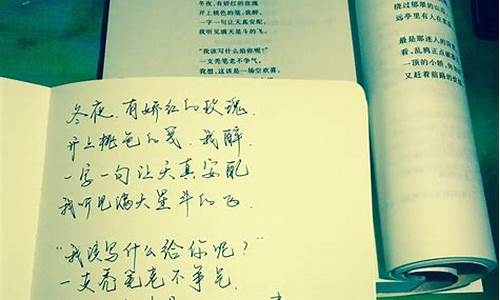 冬夜，有娇红的玫瑰
开上桃色的笺，我醉，
一字一句让天真安配，
我听见满天星斗的飞。
“我该写什么给你呢？”
一支秃笔老不争气。
我想，这该是一场空欢喜，
绕过郁翠的山
远亭里有人在
最是那迷人的
看，乱鸦正点
一顶的小轿，
又赶着前路的
冬夜，有娇红的玫瑰
开上桃色的笺，我醉，
一字一句让天真安配
我听见满天星斗的飞
“我该写什么给你呢？”
一支秃笔老不争气